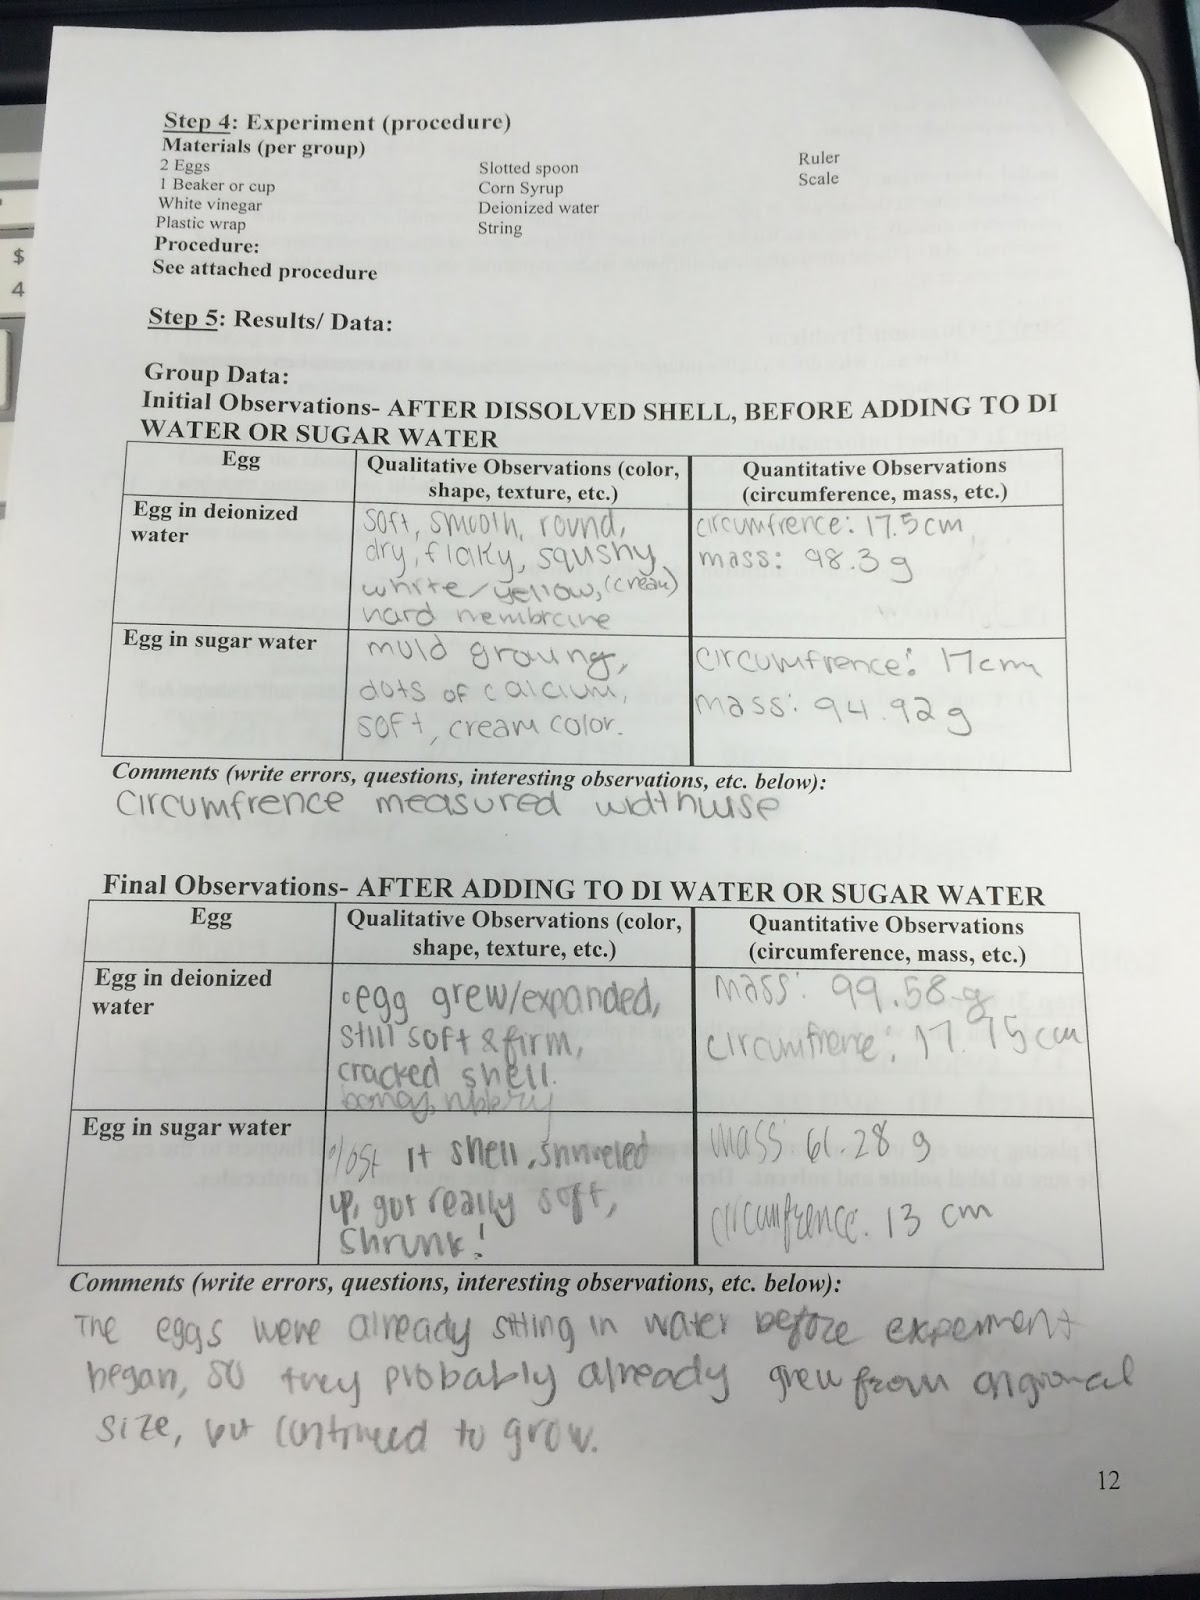 $
4
Step 4: Experiment (procedure)
Materials (per group)
2 Eggs
1 Beaker or cup
White vinegar
Plastic wrap
Slotted spoon
Corn Syrup
Deionized water
String
Ruler
Scale
Procedure:
See attached procedure
Step 5: Results/ Data:
Group Data:
Initial Observations- AFTER DISSOLVED SHELL, BEFORE ADDING TO DI
WATER OR SUGAR WATER
Egg
Qualitative Observations (color,
shape, texture, etc.)
Quantitative Observations
(circumference, mass, etc.)
Egg in deionized
water
soft, smooth, round,
dry, flaky, squshy
white/yellow, (cream)
hard membrane
circumfrence: 17.5cm
mass: 98.3 g
Egg in sugar water
muld groung,
dots of calcium,
soft, cream color.
circumfrence: 17cm
mass: 94.92 g
Comments (write errors, questions, interesting observations, etc. below):
circumfrence measured widthwise
Final Observations- AFTER ADDING TO DI WATER OR SUGAR WATER
Egg
Qualitative Observations (color,
shape, texture, etc.)
Quantitative Observations
(circumference, mass, etc.)
Egg in deionized
water
egg grew/expanded,
still soft & firm,
cracked shell.
mass: 99.58 g
circumfrence: 17.75cm
Egg in sugar water
lost it shell, shriveled
up, got really soft,
shrunk!
mass: 61.28 g
circumfrence: 13 cm
Comments (write errors, questions, interesting observations, etc. below):
The eggs were already sitting in water before experiment
began, so they probably already grew from origional
size, but continued to grow.
12